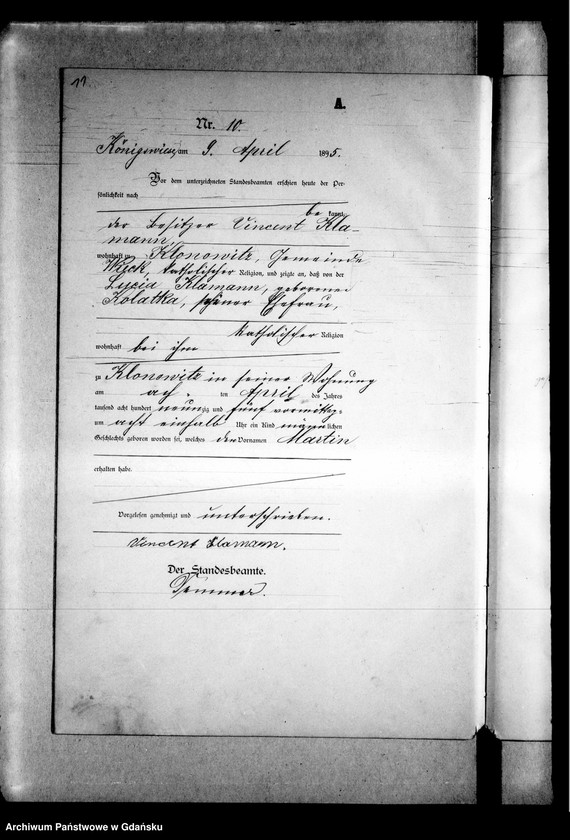 11.
A.
Nr. 10.
Königswiese, am 9. April 1895.
Vor dem unterzeichneten Standesbeamten erschien heute der Per-
sönlichkeit nach
be kannt,
der Besitzer Vincent Kla-
mann,
wohnhaft zu Klonowitz, Gemeinde
Wyck, katholischer Religion, und zeigte an, daß von der
Lucia Klamann, geborenen
Kolatka, seiner Ehefrau,
katholischer Religion
wohnhaft bei ihm
zu Klonowitz in seiner Wohnung
am ten April des Jahres
tausend acht hundert neunzig und fünf vormittags
um acht einhalb Uhr ein Kind männlichen
Geschlechts geboren worden sei, welches den Vornamen Martin
erhalten habe.
Vorgelesen genehmigt und unterschrieben.
Vincent Klamann.
Der Standesbeamte.
Archiwum Państwowe w Gdańsku